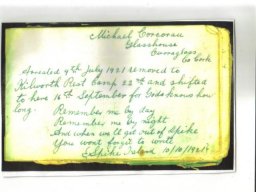 Michael Corcoran
Glasshouse
Curraglass
Co Cork
Arrested 9th July 1921 removed to
Kilworth Rest Camp 22nd and shifted
to here 16th September for Gods knows how
long.
Remember me by day
Remember me by night
And when we'll get out of Spike
You wont forget to write
Spike Island 10/10/1921